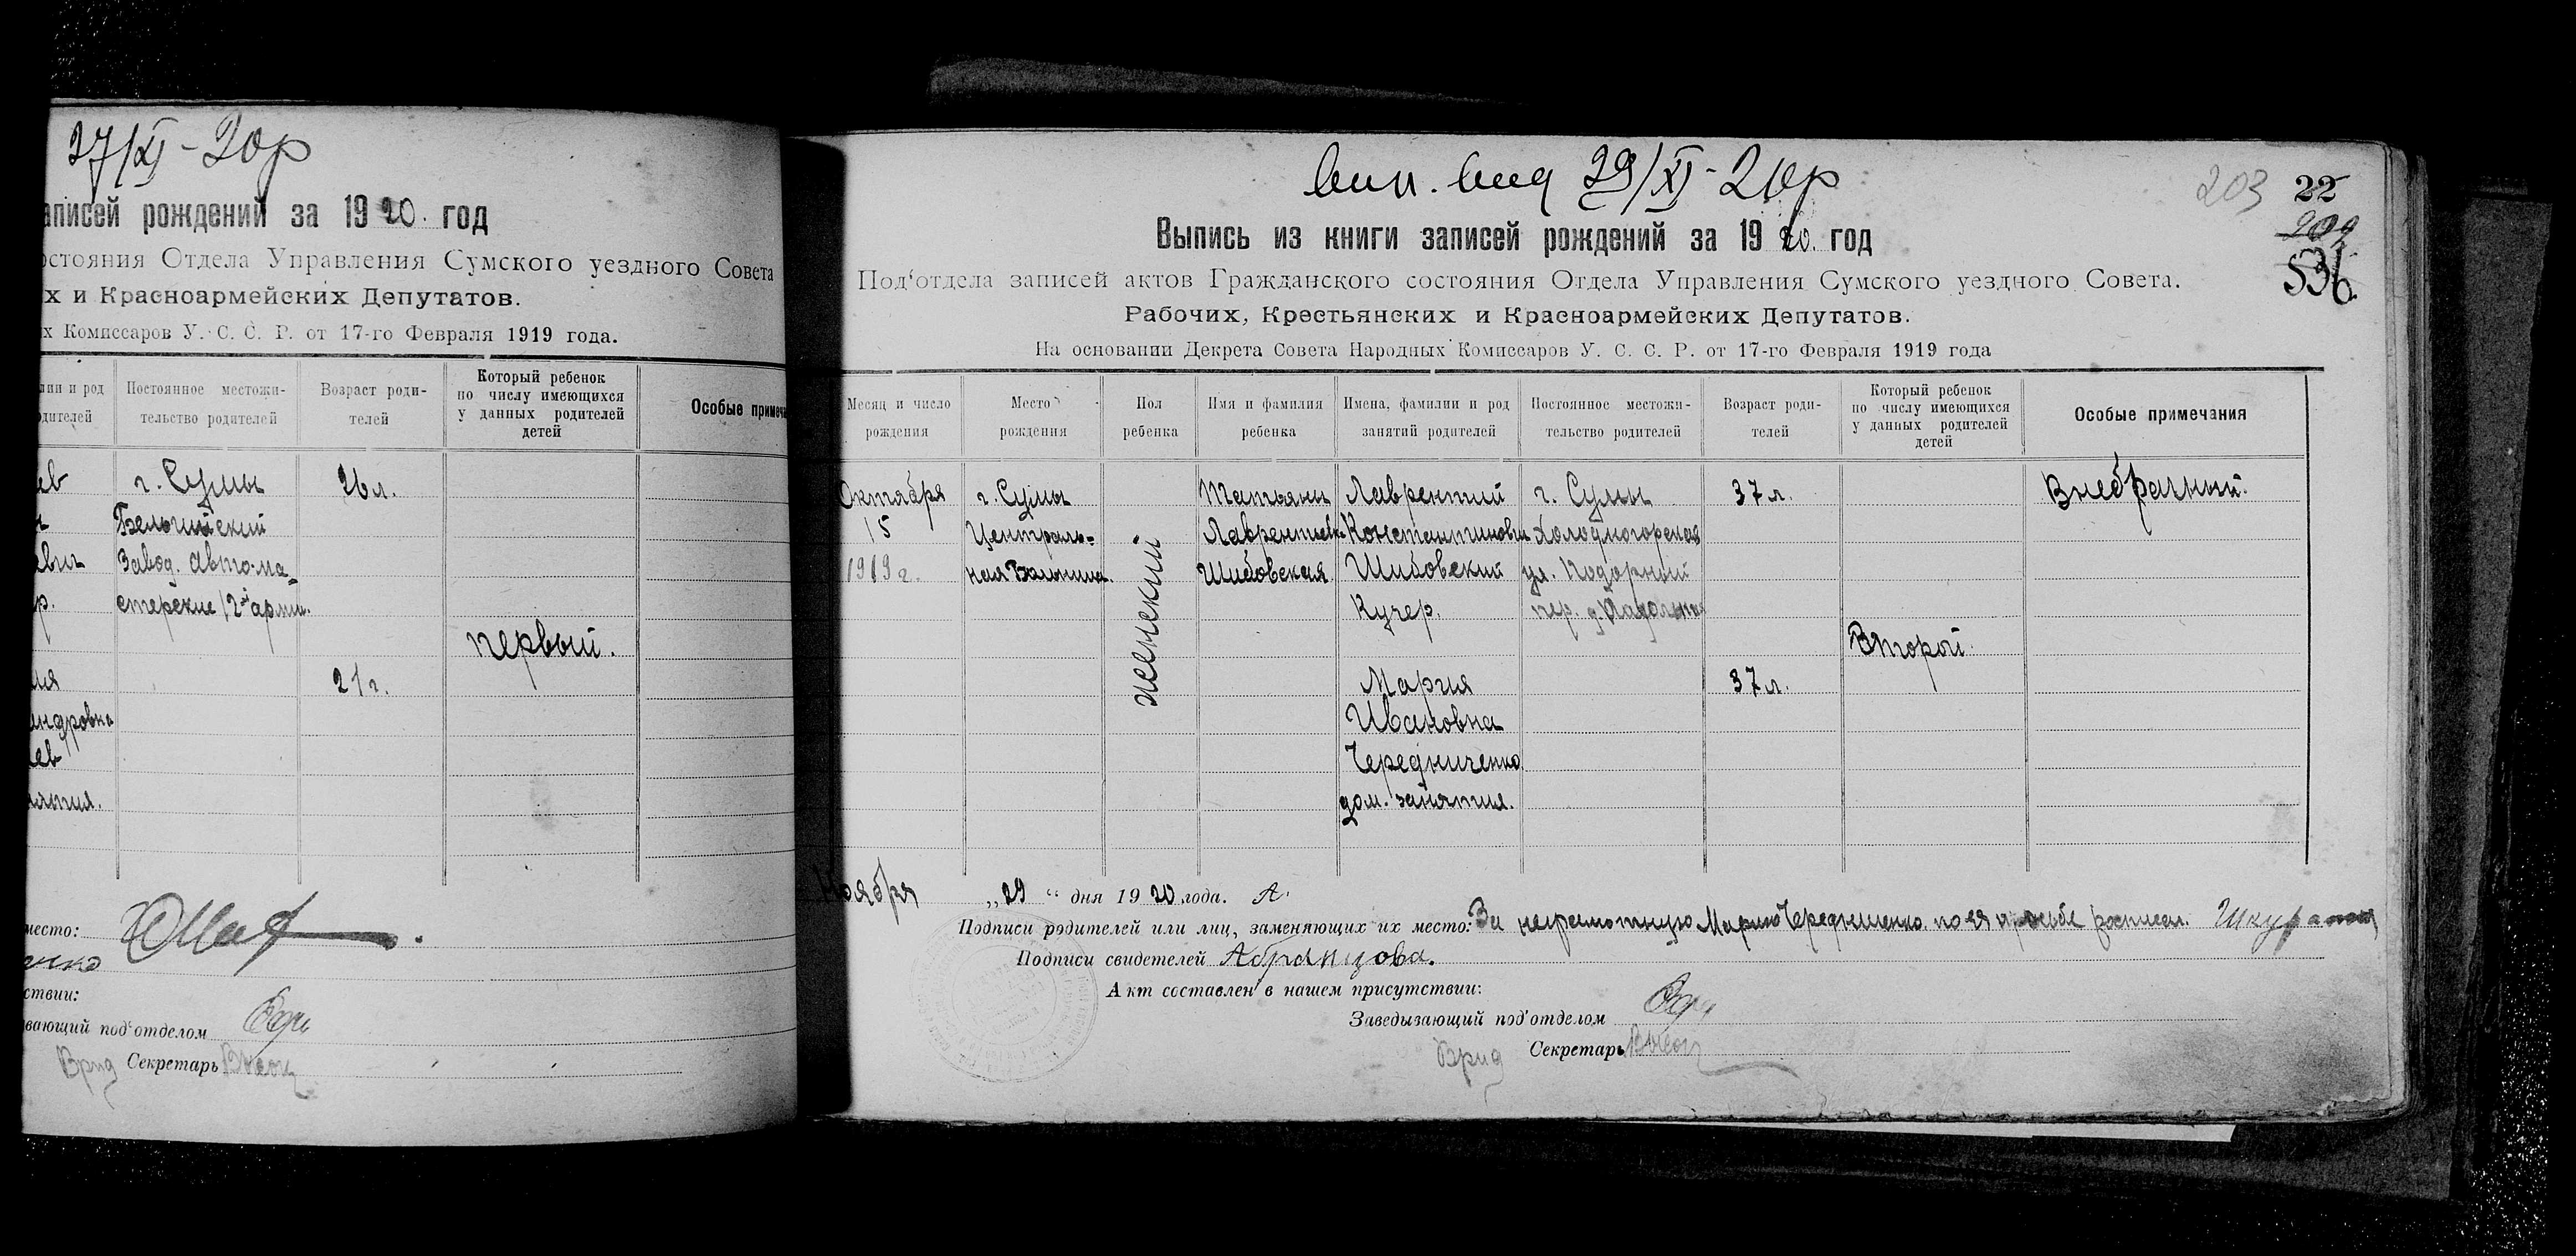 27/XI - 20р
аписей рождений за 1920. год
остояния Отдела Управления Сумского уездного Совета
х и Красноармейских Депутатов.
х Комиссаров У. С. С. Р. от 17-го Февраля 1919 года.
лии и род
одителей
Постоянное местожи-
тельство родителей
Возраст роди-
телей
Который ребенок
по числу имеющихся
у данных родителей
детей
Особые примеча
ев
г. Сумы
26 л.
Бельгийский
евич
Завод. Автома-
р.
стерские 12й арми.
первый.
ия
21 г.
андровна
ев
нятия.
место:
енко
ствии:
вающий под'отделом
Врид Секретарь
вип. вид 29/XI - 20р
203
22
209
536
Выпись из книги записей рождений за 1920. год
Под'отдела записей актов Гражданского состояния Отдела Управления Сумского уездного Совета.
Рабочих, Крестьянских и Красноармейских Депутатов.
На основании Декрета Совета Народных Комиссаров У. С. С. Р. от 17-го Февраля 1919 года
Месяц и число
рождения
Место
рождения
Пол
ребенка
Имя и фамилия
ребенка
Имена, фамилии и род
занятий родителей
Постоянное местожи-
тельство родителей
Возраст роди-
телей
Который ребенок
по числу имеющихся
у данных родителей
детей
Особые примечания
Октября
15
1919 г.
г. Сумы
Централь-
ная Больница.
женский
Татьяна
Лаврентьевн.
Шибовская
Лаврентий
Константинович
Шибовский
Кучер.
Мария
Ивановна
Чередниченко
дом. занятия.
г. Сумы
Холодногорская
ул. Подорный
пер. д.
37 л.
37 л.
Второй.
Внебрачный.
Ноября „29“ дня 1920 года. А.
Подписи родителей или лиц, заменяющих их место: За неграмотную Марию Чередниченко по ея просьбе росписал.
Подписи свидетелей Абранцова.
Акт составлен в нашем присутствии:
Заведывающий под'отделом
Врид Секретарь